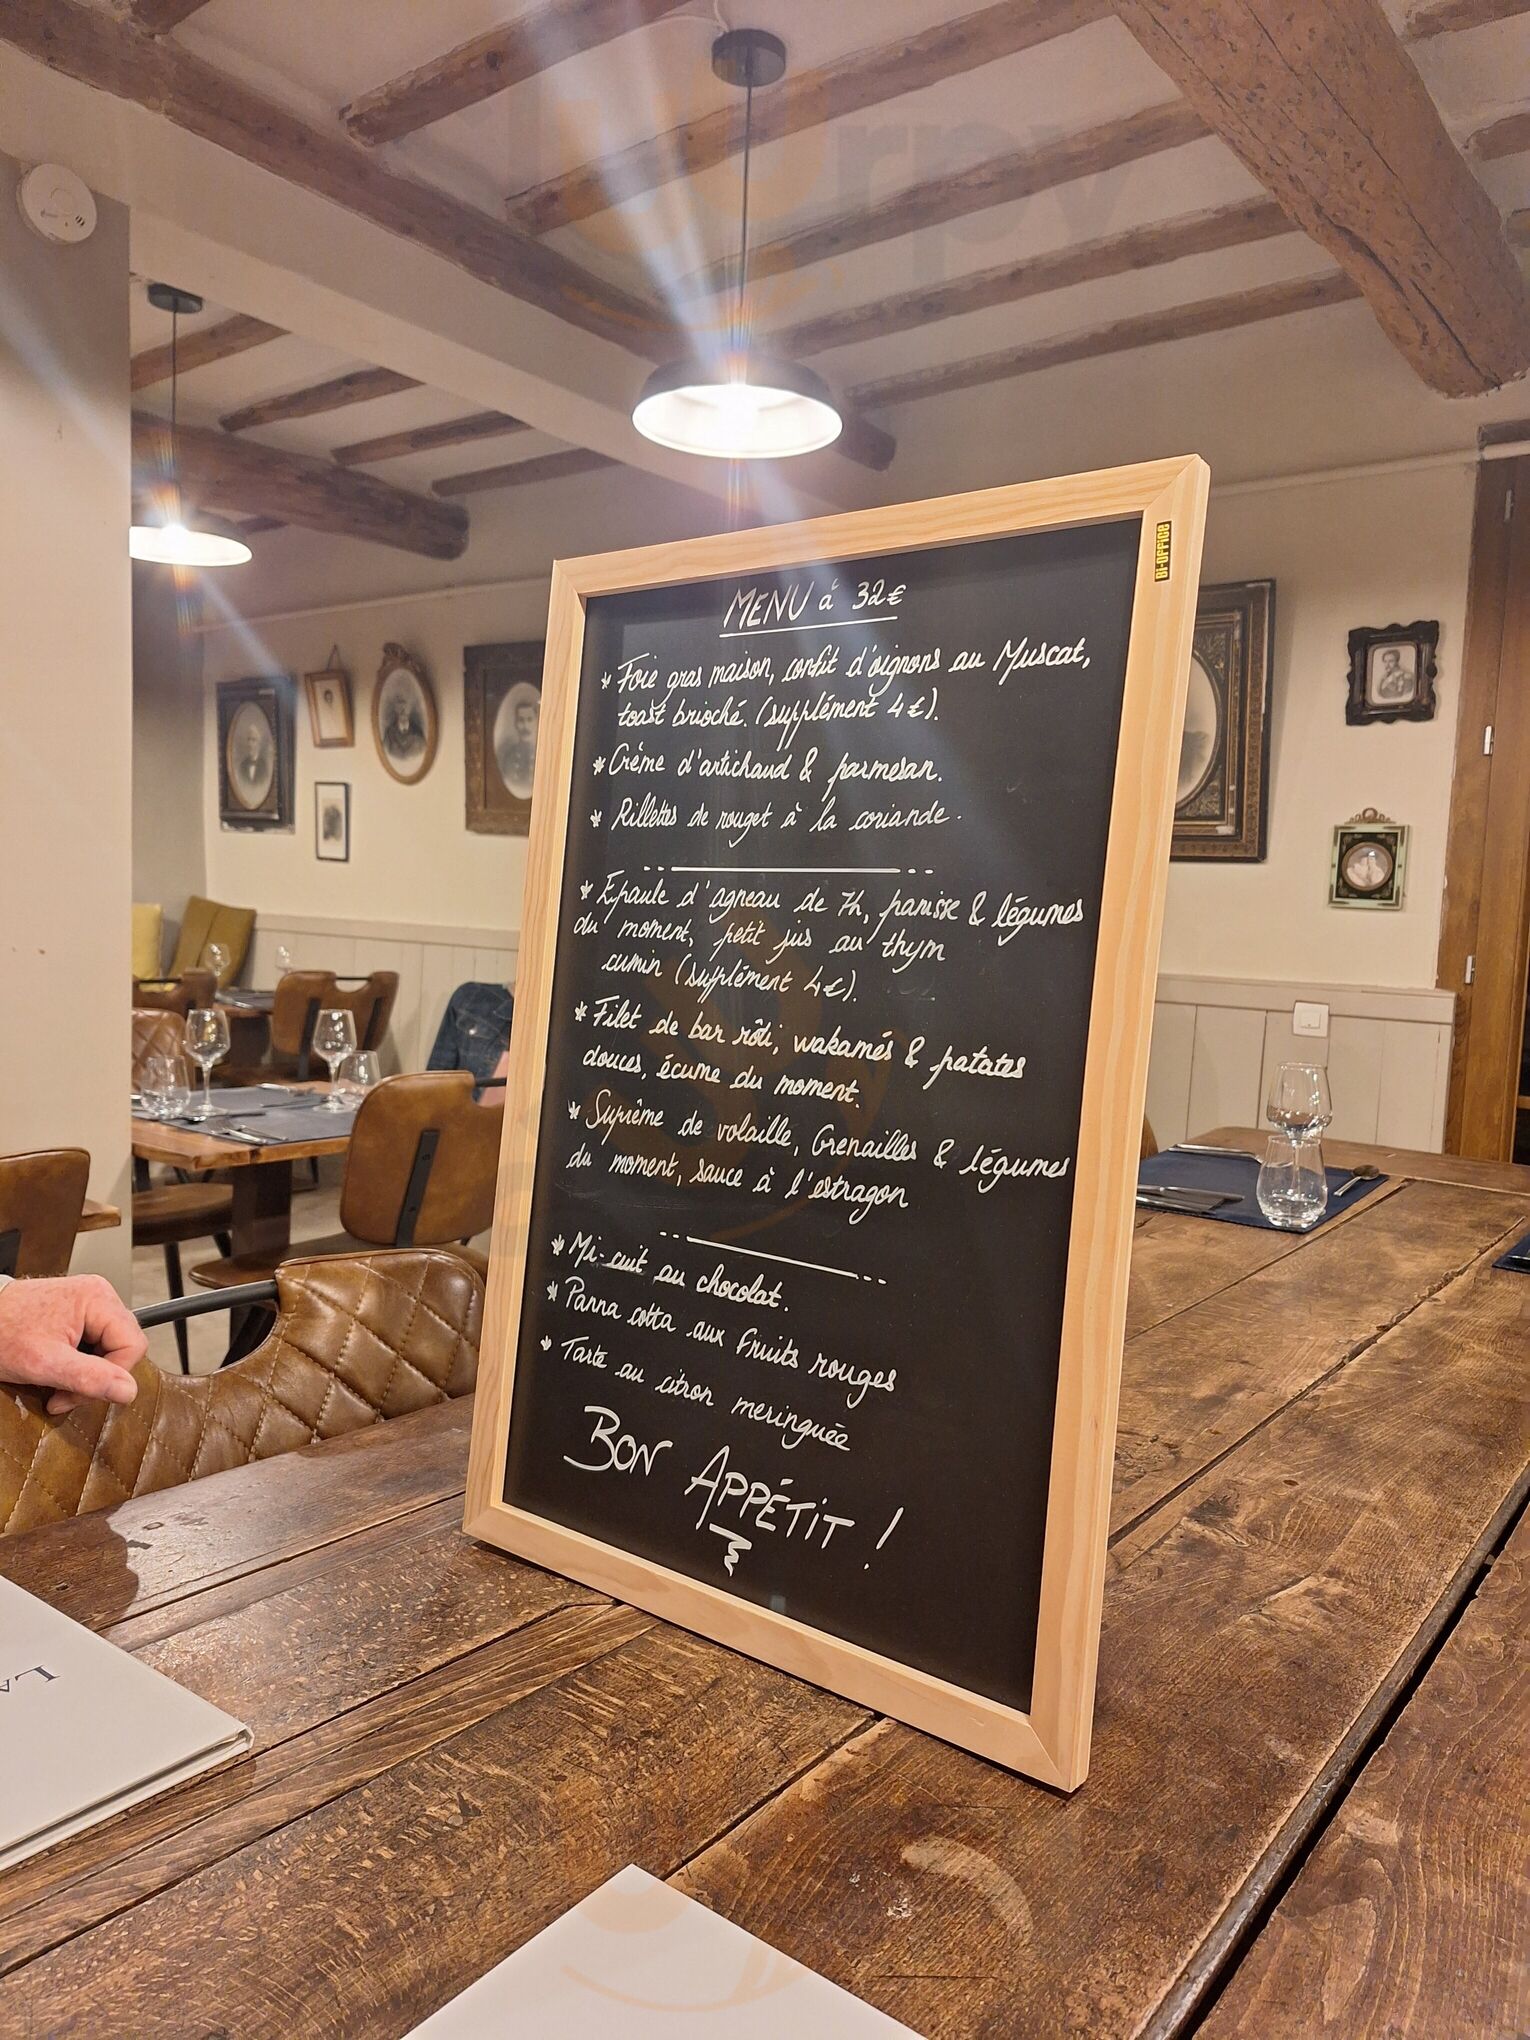 MENU à 32€
* Foie gras maison, confit d'oignons au Muscat,
toast brioché. (supplément 4€).
* Crème d'artichaud & parmesan.
* Rillettes de rouget à la coriande.
* Epaule d'agneau de 7h, panisse & légumes
du moment, petit jus au thym
cumin (supplément 4€).
* Filet de bar rôti, wakamés & patates
douces, écume du moment.
* Suprême de volaille, Grenailles & légumes
du moment, sauce à l'estragon
* Mi-cuit au chocolat.
* Panna cotta aux fruits rouges
* Tarte au citron meringuée
BON APPÉTIT !
Bi-OFFiCE
LA